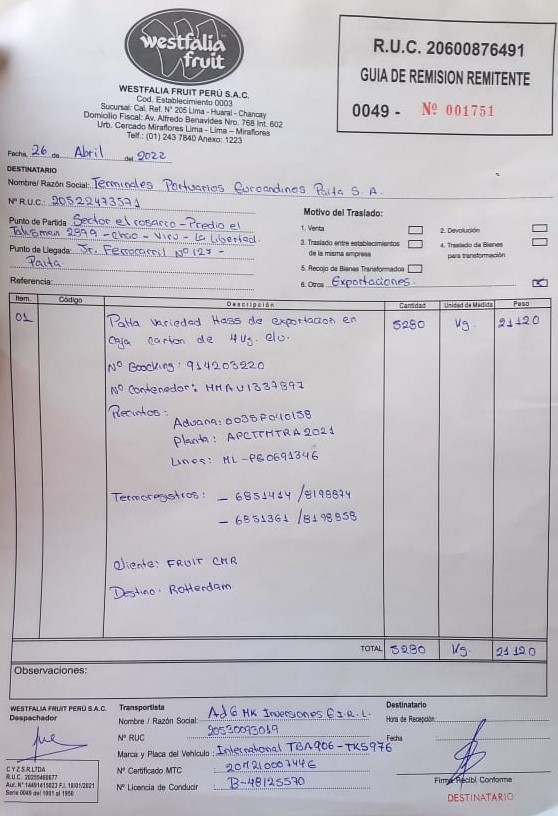 westfalia
fruit
WESTFALIA FRUIT PERÚ S.A.C.
Cod. Establecimiento 0003
Sucursal: Cal. Ref. N° 205 Lima - Huaral - Chancay
Domicilio Fiscal: Av. Alfredo Benavides Nro. 768 Int. 602
Urb. Cercado Miraflores Lima - Lima – Miraflores
Telf.: (01) 243 7840 Anexo: 1223
R.U.C. 20600876491
GUIA DE REMISION REMITENTE
0049 - Nº 001751
Fecha, 26 de Abril del 2022
DESTINATARIO
Nombre/ Razón Social: Terminales Portuarios Euroandinos Paita S A.
N° R.U.C.: 20522473571
Punto de Partida: Sector el rosario - Predio el
Talisman 2999 - Chao - Viru - La Libertad.
Punto de Llegada: Jr. Ferrocarril N° 127 -
Paita
Referencia:
Motivo del Traslado:
1. Venta
2. Devolución
3. Traslado entre establecimientos
de la misma empresa
4. Traslado de Bienes
para transformación
5. Recojo de Bienes Transformados
6. Otros Exportaciones X
Item. Código Descripción Cantidad Unidad de Medida Peso
01 Palta Variedad Hass de exportacion en 5280 Kg. 21120
Caja carton de 4Kg. c/u.
N° Boocking: 914203220
N° Contenedor: MMAU1337897
Precintos:
Aduana: 0035P040158
Planta: APCTTMTRA2021
Linea: ML-PE0691346
Termoregistros: - 6851414 / 8198874
- 6851361 / 8198858
Cliente: FRUIT CMR
Destino: Rotterdam.
TOTAL 5280 Kg. 21120
Observaciones:
WESTFALIA FRUIT PERÚ S.A.C.
Despachador
C Y Z S.R.LTDA
Aut. N° 14491415023 F.I. 18/01/2021
Serie 0049 del 1001 al 1950
Transportista
Nombre / Razón Social: AdG MK Inversiones E.I.R.L.
N° RUC 20530093019
Marca y Placa del Vehículo: International TBA906 - TK5976
N° Certificado MTC
N° Licencia de Conducir B-48125570
Destinatario
Hora de Recepción:
Fecha
Firma Recibí Conforme
DESTINATARIO